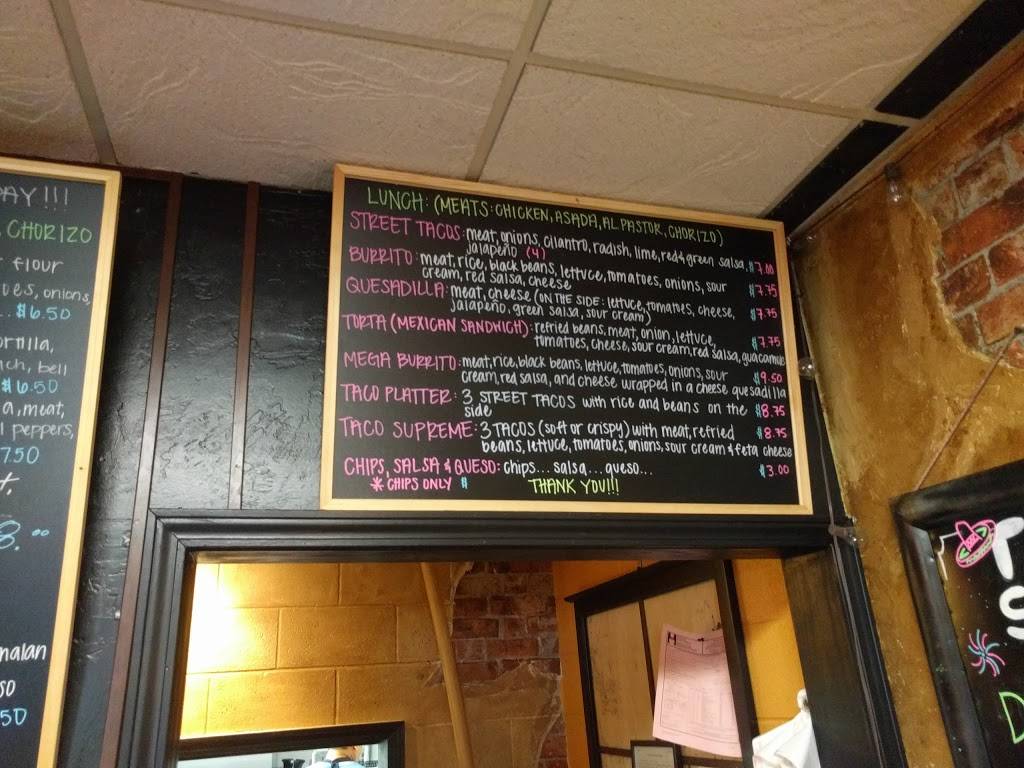 PAY!!!
CHORIZO
flour
onions,
$6.50
bell
$6.50
meat,
peppers,
7.50
8.00
50
LUNCH: (MEATS: CHICKEN, ASADA, AL PASTOR, CHORIZO)
STREET TACOS: meat, onions, cilantro, radish, lime, red & green salsa, $7.00
jalapeño (4)
BURRITO: meat, rice, black beans, lettuce, tomatoes, onions, sour $7.75
cream, red salsa, cheese
QUESADILLA: meat, cheese (ON THE SIDE: lettuce, tomatoes, cheese, $7.75
jalapeño, green salsa, sour cream)
TORTA (MEXICAN SANDWICH): refried beans, meat, onion, lettuce, $7.75
tomatoes, cheese, sour cream, red salsa, guacamole
MEGA BURRITO: meat, rice, black beans, lettuce, tomatoes, onions, sour $9.50
cream, red salsa, and cheese wrapped in a cheese quesadilla
TACO PLATTER: 3 STREET TACOS with rice and beans on the $8.75
side
TACO SUPREME: 3 TACOS (soft or crispy) with meat, refried $8.75
beans, lettuce, tomatoes, onions, sour cream & feta cheese
CHIPS, SALSA & QUESO: chips... salsa... queso... $3.00
* CHIPS ONLY $ THANK YOU!!!